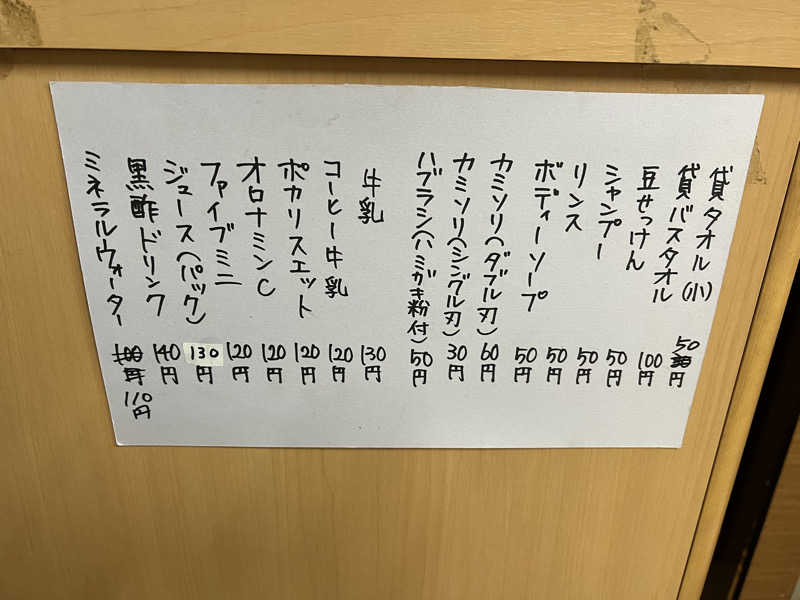 貸タオル(小) 50円
貸バスタオル 100円
豆せっけん 50円
シャンプー 50円
リンス 50円
ボディーソープ 50円
カミソリ(ダブル刃) 60円
カミソリ(シングル刃) 30円
ハブラシ(ハミガキ粉付) 50円
牛乳 130円
コーヒー牛乳 120円
ポカリスエット 120円
オロナミンC 120円
ファイブミニ 120円
ジュース(パック) 130円
黒酢ドリンク 140円
ミネラルウォーター 100円 110円